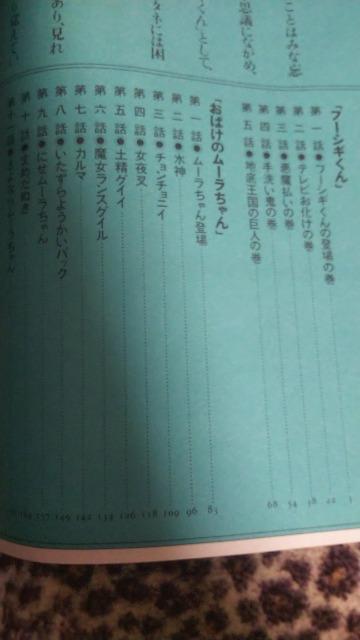 ことはみな忘
思議にながめ、
くん」として、
タネには困
あり、見れ
「フーシギくん」
第一話●フーシギくんの登場の巻
第二話●テレビお化けの巻 22
第三話●悪魔払いの巻 38
第四話●手洗い鬼の巻 54
第五話●地底王国の巨人の巻 68
「おばけのムーラちゃん」
第一話●ムーラちゃん登場 83
第二話●水神 96
第三話●チョンチョニイ 109
第四話●女夜叉 118
第五話●土精グイイ 126
第六話●魔女ランスグイル 133
第七話●カルマ 142
第八話●いたずらようかいパック 149
第九話●にせムーラちゃん 157
第十話●
第十一話●